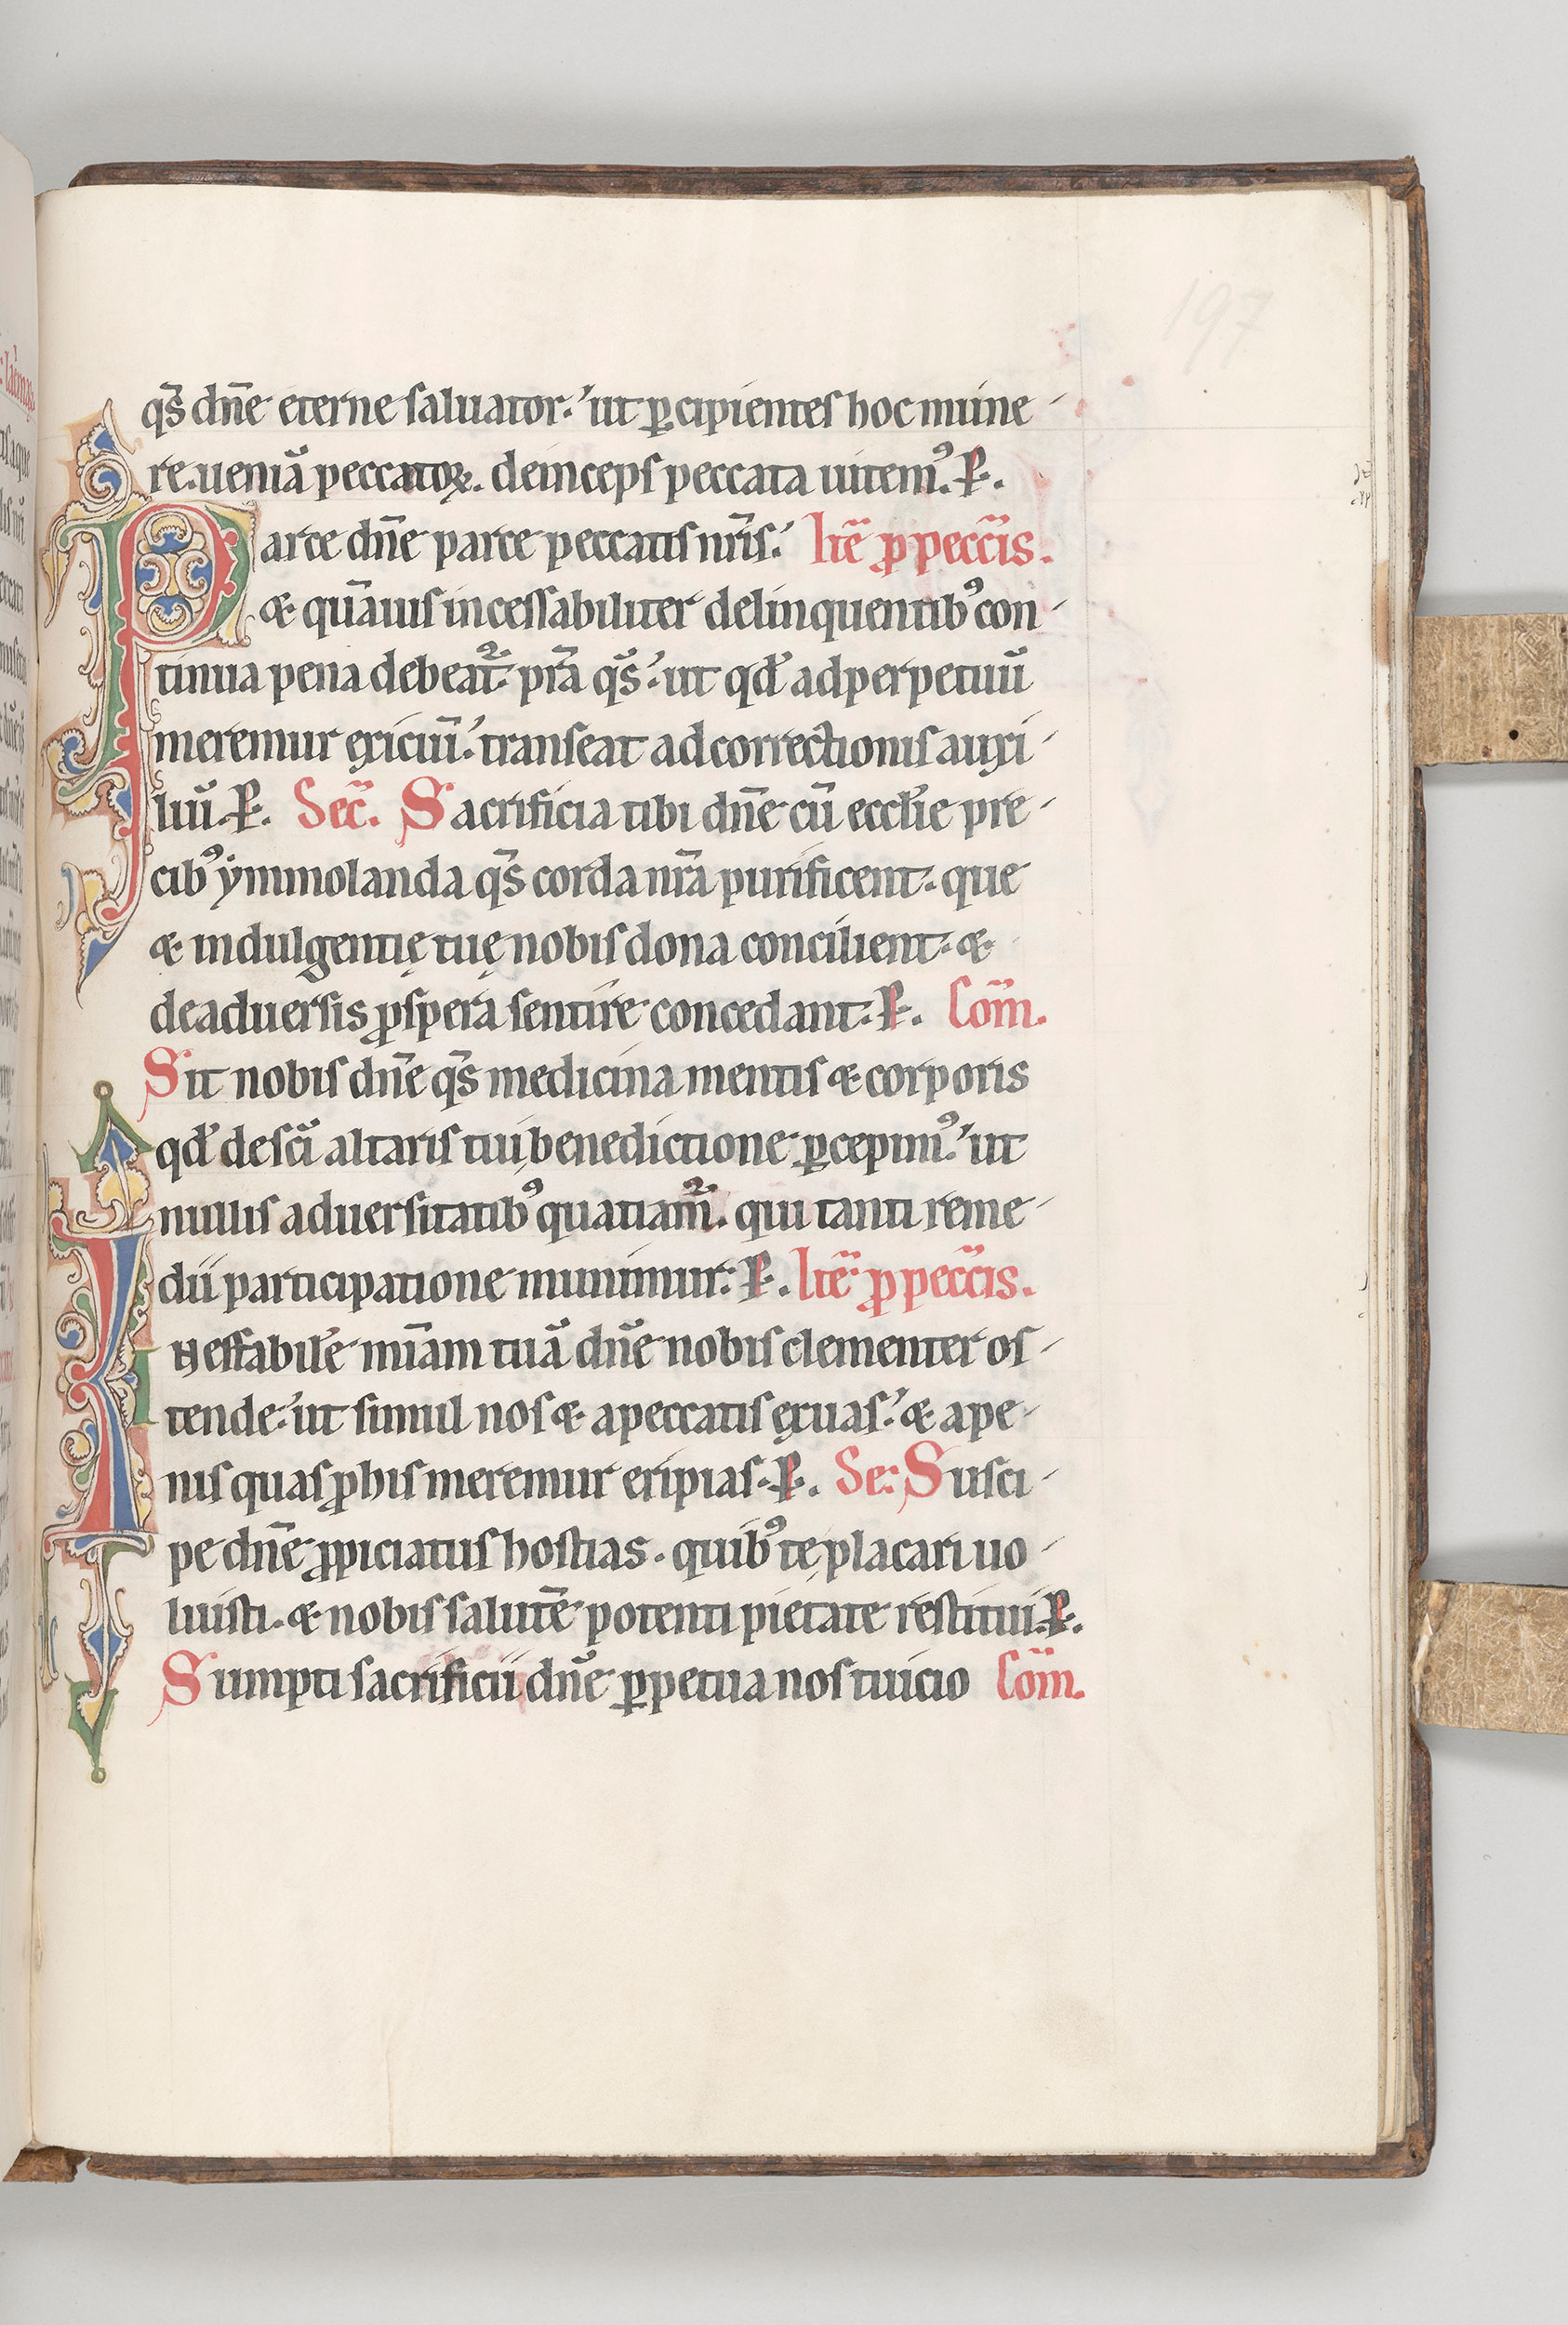 197
qs̄ dn̄e eterne saluator. ut ꝑcipientes hoc mune-
re. ueniā peccatoꝝ. deinceps peccata uitemꝰ. P.
Parce dn̄e parce peccatis nr̄is. Itē ꝓ pecc̄is.
& quāuis incessabiliter delinquentibꝰ con-
tinua pena debeat᷑. pr̄a qs̄. ut qđ ad perpetuū
meremur exiciū. transeat ad correctionis auxi-
liū. P. Sec̄. Sacrificia tibi dn̄e cū eccłie pre-
cibꝰ ẏmmolanda qs̄ corda nr̄a purificent. que
& indulgentię tuę nobis dona concilient. &
de aduersis ꝓspera sentire concedant. P. Com̄.
Sit nobis dn̄e qs̄ medicina mentis & corporis
qđ de sc̄i altaris tui benedictione ꝑcepimꝰ. ut
nullis aduersitatibꝰ quatiam᷑. qui tanti reme-
dii participatione munimur. P. Itē ꝓ pecc̄is.
Ineffabilē mīam tuā dn̄e nobis clementer os-
tende. ut simul nos & a peccatis exuas. & a pe-
nis quas ꝓ his meremur eripias. P. Se: Susci-
pe dn̄e ꝓpiciatus hostias. quibꝰ te placari uo-
luisti. & nobis salutē potenti pietate restitui. P.
Sumpti sacrificii dn̄e ꝑpetua nos tuicio Com̄.